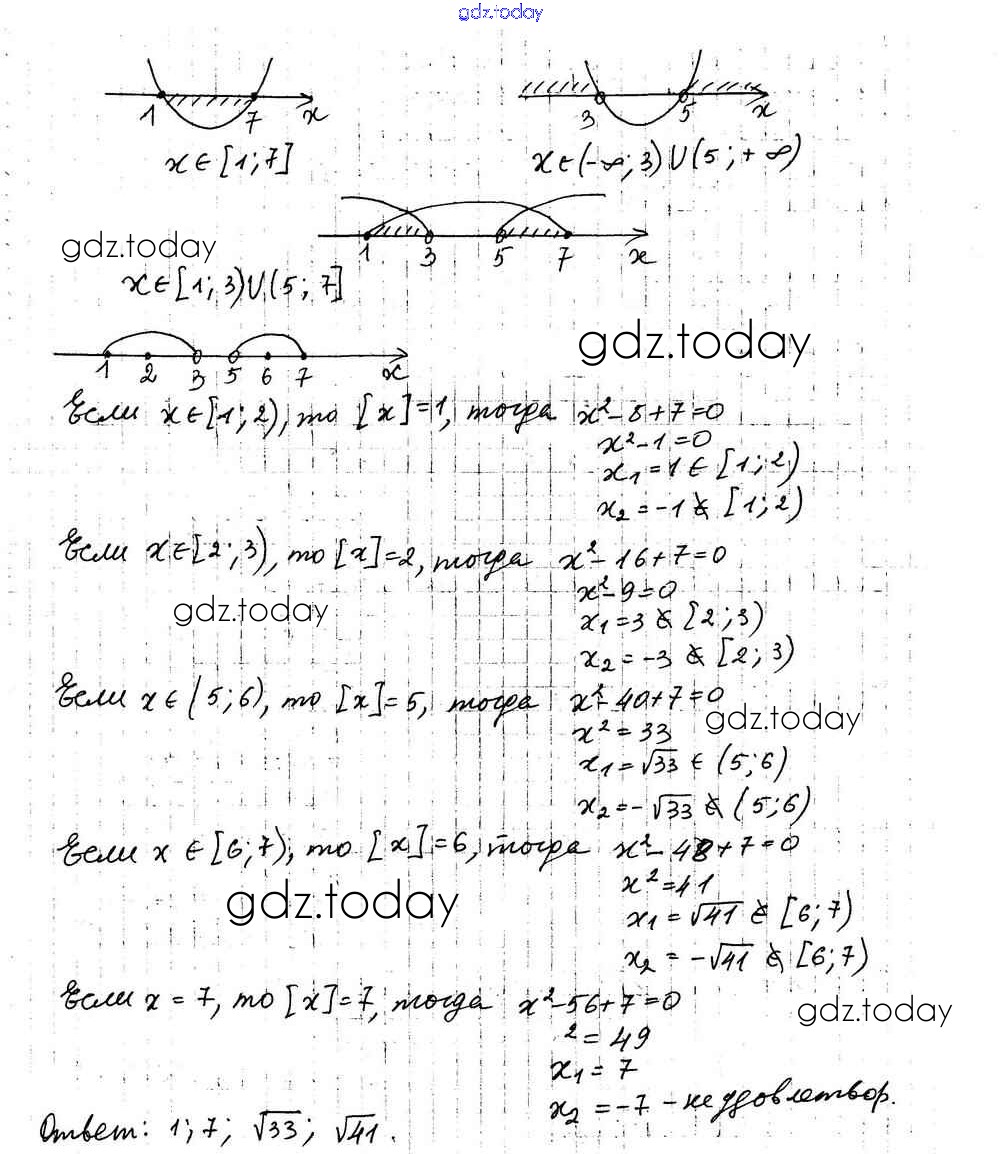 gdz.today
1 7 x 3 5 x
x ∈ [1; 7] x ∈ (-∞; 3) ∪ (5; +∞)
1 3 5 7 x
gdz.today
x ∈ [1; 3) ∪ (5; 7]
gdz.today
1 2 3 5 6 7 x
Если x ∈ [1; 2), то [x] = 1, тогда x² - 8 + 7 = 0
x² - 1 = 0
x₁ = 1 ∈ [1; 2)
x₂ = -1 ∉ [1; 2)
Если x ∈ [2; 3), то [x] = 2, тогда x² - 16 + 7 = 0
x² - 9 = 0
gdz.today
x₁ = 3 ∉ [2; 3)
x₂ = -3 ∉ [2; 3)
Если x ∈ (5; 6), то [x] = 5, тогда x² - 40 + 7 = 0
gdz.today
x² = 33
x₁ = √33 ∈ (5; 6)
x₂ = -√33 ∉ (5; 6)
Если x ∈ [6; 7), то [x] = 6, тогда x² - 48 + 7 = 0
x² = 41
gdz.today
x₁ = √41 ∈ [6; 7)
x₂ = -√41 ∉ [6; 7)
Если x = 7, то [x] = 7, тогда x² - 56 + 7 = 0
gdz.today
² = 49
x₁ = 7
x₂ = -7 - не удовлетвор.
Ответ: 1; 7; √33; √41.